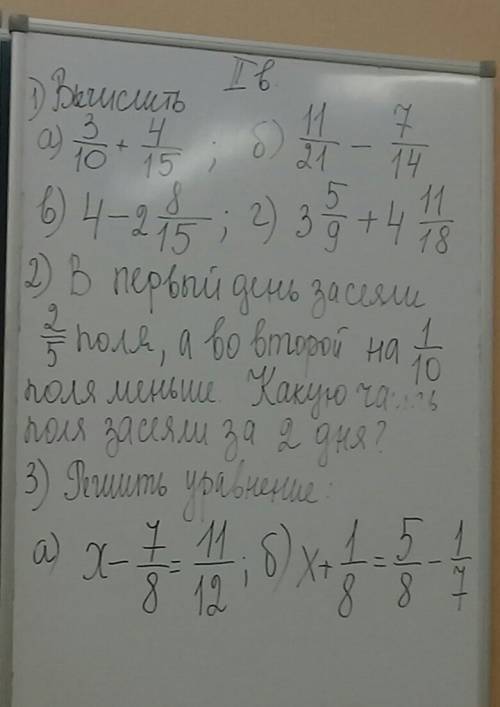 II в.
1) Вычислить
а) 3/10 + 4/15 ; б) 11/21 − 7/14
в) 4 − 2 8/15 ; г) 3 5/9 + 4 11/18
2) В первый день засеяли
2/5 поля, а во второй на 1/10
поля меньше. Какую часть
поля засеяли за 2 дня?
3) Решить уравнение:
а) x − 7/8 = 11/12 ; б) x + 1/8 = 5/8 − 1/7